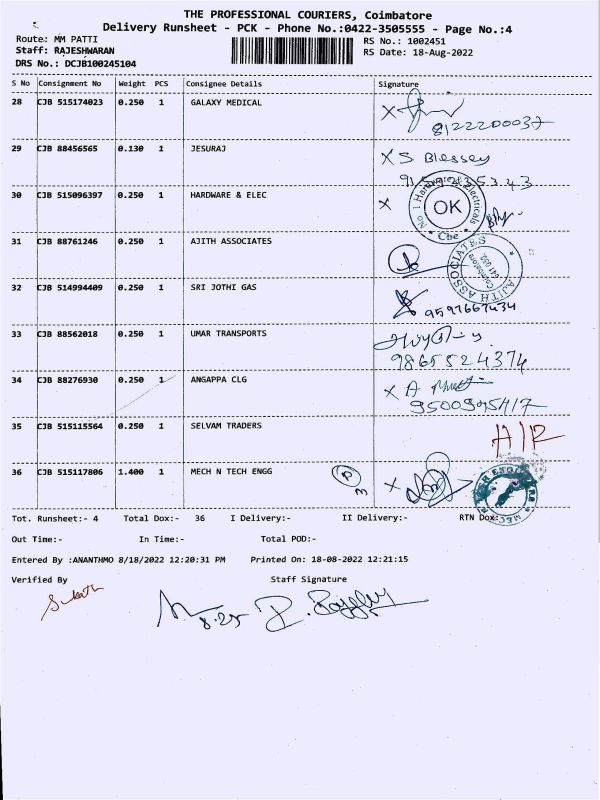 THE PROFESSIONAL COURIERS, Coimbatore
Delivery Runsheet - PCK - Phone No.:0422-3505555 - Page No.:4
Route: MM PATTI
RS No.: 1002451
Staff: RAJESHWARAN
RS Date: 18-Aug-2022
DRS No.: DCJB100245104
S No Consignment No Weight PCS Consignee Details Signature
28 CJB 515174023 0.250 1 GALAXY MEDICAL X
8122200037
29 CJB 88456565 0.130 1 JESURAJ X S Blessey
30 CJB 515096397 0.250 1 HARDWARE & ELEC X
No.1 Hardware & Electricals
OK
* Cbe *
31 CJB 88761246 0.250 1 AJITH ASSOCIATES
AJITH ASSOCIATES
Coimbatore
641 032.
32 CJB 514994409 0.250 1 SRI JOTHI GAS
9597667434
33 CJB 88562018 0.250 1 UMAR TRANSPORTS
9865524374
34 CJB 88276930 0.250 1 ANGAPPA CLG X A
35 CJB 515115564 0.250 1 SELVAM TRADERS
A/R
36 CJB 515117806 1.400 1 MECH N TECH ENGG X
Tot. Runsheet:- 4 Total Dox:- 36 I Delivery:- II Delivery:- RTN Dox:-
Out Time:- In Time:- Total POD:-
Entered By :ANANTHMO 8/18/2022 12:20:31 PM Printed On: 18-08-2022 12:21:15
Verified By Staff Signature
8.25